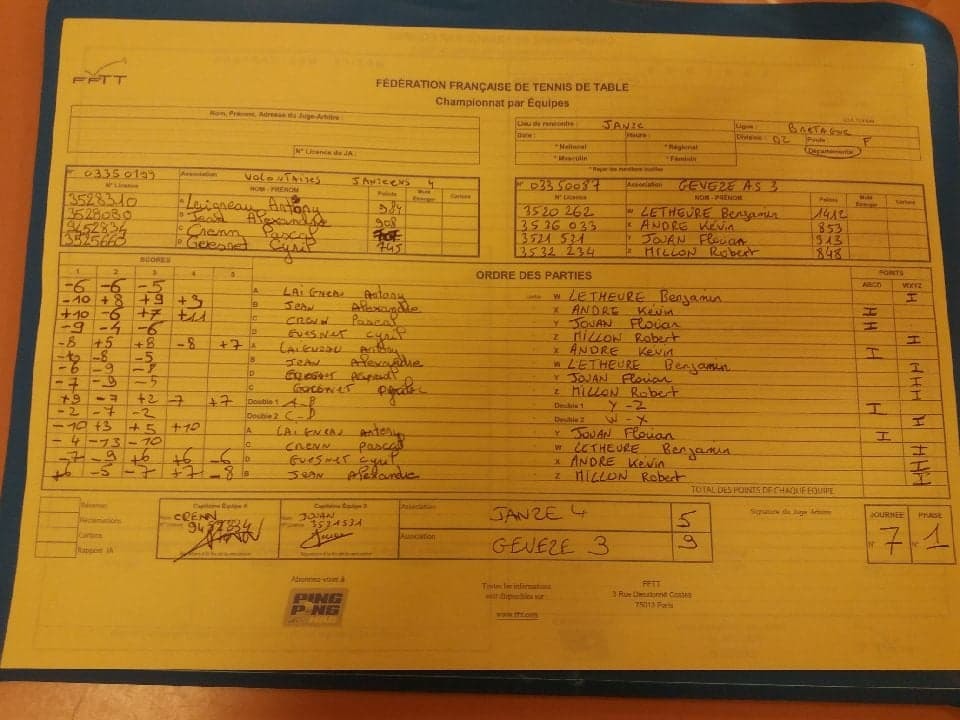 FFTT
FÉDÉRATION FRANÇAISE DE TENNIS DE TABLE
Championnat par Équipes
Nom, Prénom, Adresse du Juge-Arbitre
N° Licence du JA :
Lieu de rencontre : JANZE
Ligue : BRETAGNE
Date : Heure :
Division : D2 Poule : F
* National * Régional Départemental
* Masculin * Féminin
* Rayer les mentions inutiles
N° 03350199 Association VOLONTAIRES JANZEENS 4
N° Licence NOM - PRÉNOM Points Mute Étranger Cartons
3528310 A Laigneau Antony 984
3528080 B Jean Alexandre 908
9452834 C Crenn Pascal
3525660 D Guesnet Cyril 745
N° 03350087 Association GEVEZE AS 3
N° Licence NOM - PRÉNOM Points Mute Étranger Cartons
3520 262 W LETHEURE Benjamin 1412
3536 033 X ANDRE Kévin 853
3521 531 Y JOUAN Florian 913
3532 234 Z MILLON Robert 848
SCORES
ORDRE DES PARTIES
POINTS
1 2 3 4 5
ABCD WXYZ
-6 -6 -5 A LAIGNEAU Antony W LETHEURE Benjamin I
-10 +8 +9 +3 B JEAN Alexandre X ANDRE Kévin I
+10 -6 +7 +11 C CRENN Pascal Y JOUAN Florian I
-9 -4 -6 D GUESNET Cyril Z MILLON Robert I
-8 +5 +8 -8 +7 A LAIGNEAU Antony X ANDRE Kévin I
-8 -5 B JEAN Alexandre W LETHEURE Benjamin I
-6 -9 -8 D Y JOUAN Florian I
-7 -9 -5 C Z MILLON Robert I
+9 -7 +2 -7 +7 Double 1 A-B Double 1 Y-Z I
-2 -7 -2 Double 2 C-D Double 2 W-X I
-10 +3 +5 +10 A LAIGNEAU Antony Y JOUAN Florian I
-4 -13 -10 C CRENN Pascal W LETHEURE Benjamin I
-7 -9 +6 +6 -6 D GUESNET Cyril X ANDRE Kévin I
+6 -5 -7 +7 -8 B JEAN Alexandre Z MILLON Robert I
TOTAL DES POINTS DE CHAQUE ÉQUIPE
Réserves
Réclamations
Cartons
Rapport JA
Capitaine Équipe A
CRENN
Capitaine Équipe X
JOUAN
3521531
Association JANZE 4 5
Association GEVEZE 3 9
Signature du Juge Arbitre
JOURNÉE N° 7
PHASE N° 1
Abonnez-vous à
PING PONG MAG
Toutes les informations
sont disponibles sur :
www.fftt.com
FFTT
3 Rue Dieudonné Costes
75013 Paris